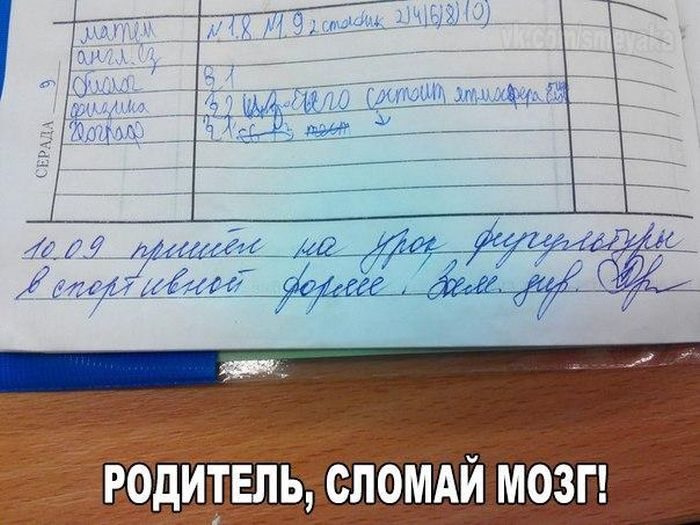 vk.com/smeyaka
матем N 1.8 N1.9 2 столбик 2)4)6)8)10)
англ. яз
биолог § 1
физика § 2 из чего состоит атмосфера
географ § 1 тест
СЕРАДА 9
10.09 пришёл на урок физкультуры
в спортивной форме! Зам. дир.
РОДИТЕЛЬ, СЛОМАЙ МОЗГ!